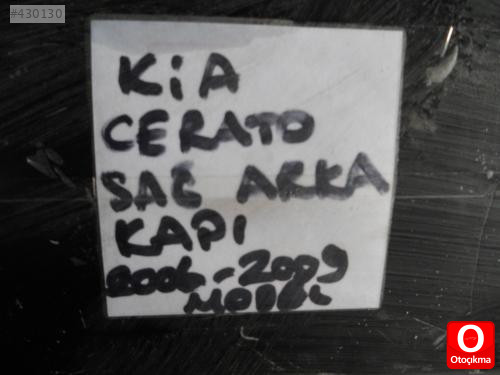 #430130
KİA
CERATO
SAĞ ARKA
KAPI
2006-2009
MODEL
Otoçıkma